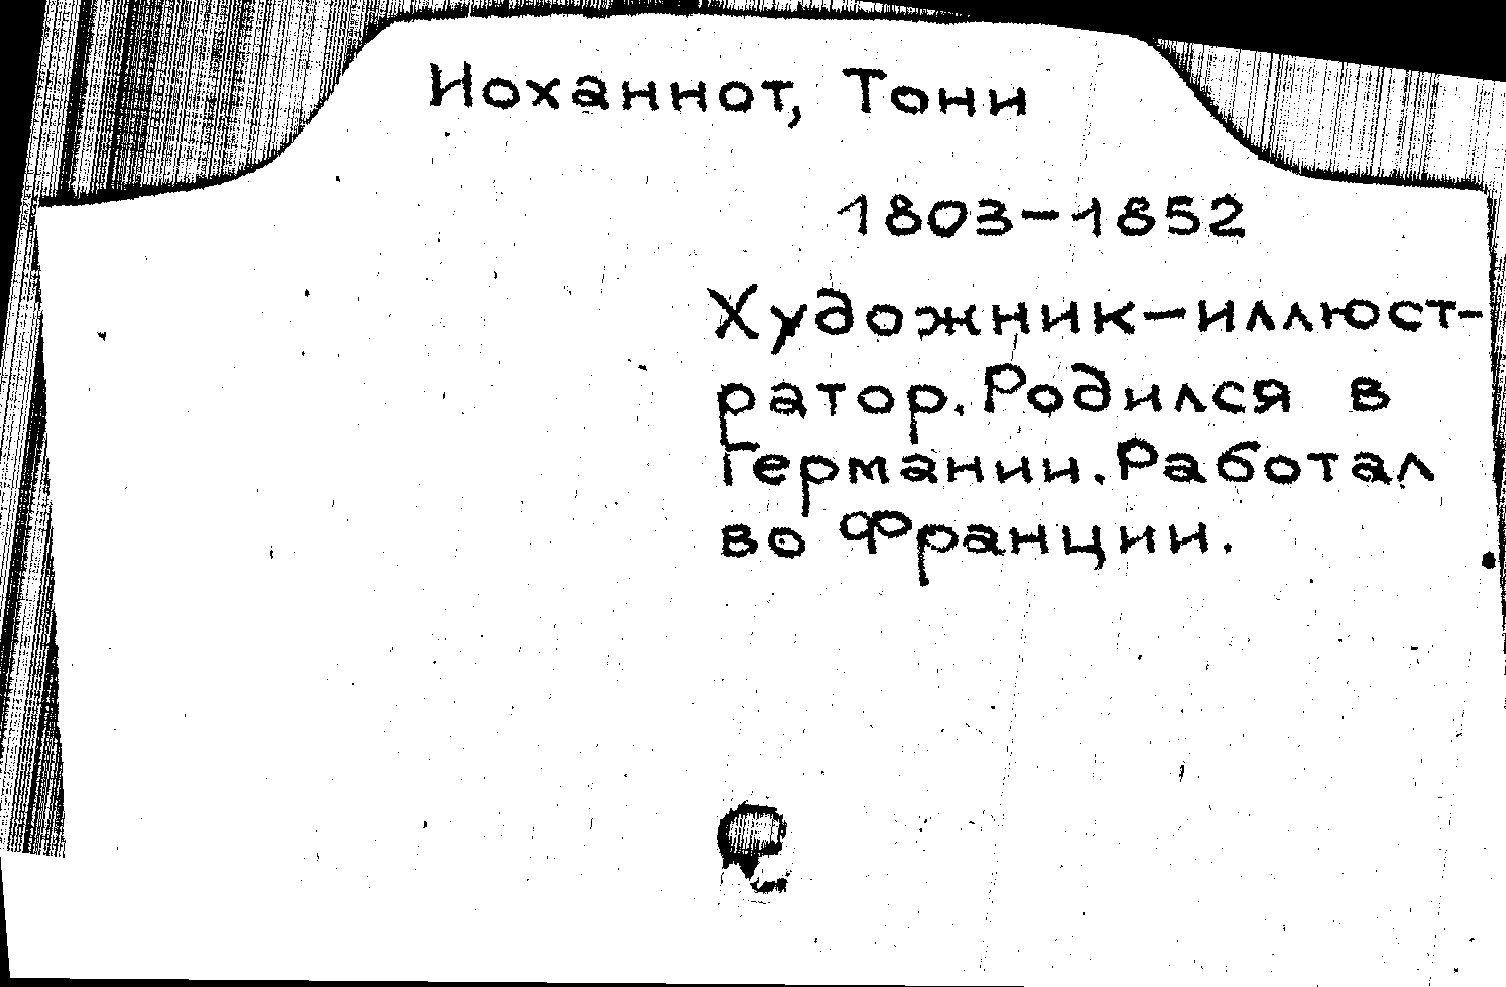 Иоханнот, Тони
1803-1852
Художник-иллюст-
ратор. Родился в
Германии. Работал
во Франции.